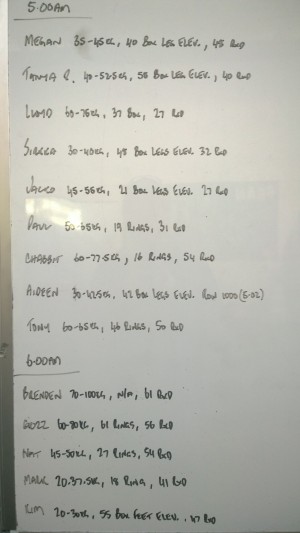 5.00AM
MEGAN 35-45KG, 40 BOX LEG ELEV., 45 RXD
TANYA R. 40-52.5KG, 58 BOX LEG ELEV., 40 RXD
LLOYD 60-75KG, 37 BOX, 27 RXD
SIRKKA 30-40KG, 48 BOX LEGS ELEV. 32 RXD
JACKO 45-55KG, 21 BOX LEGS ELEV. 27 RXD
PAUL 50-65KG, 19 RINGS, 31 RXD
CHABBIT 60-77.5KG, 16 RINGS, 54 RXD
AIDEEN 30-42.5KG, 42 BOX LEGS ELEV. ROW 1000 (5.02)
TONY 60-65KG, 46 RINGS, 50 RXD
6.00AM
BRENDEN 70-100KG, N/M, 61 RXD
GOZZ 60-80KG, 61 RINGS, 56 RXD
NAT 45-50KG, 27 RINGS, 54 RXD
MARK 20-37.5KG, 18 RINGS, 41 RXD
KIM 20-30KG, 55 BOX FEET ELEV. 47 RXD